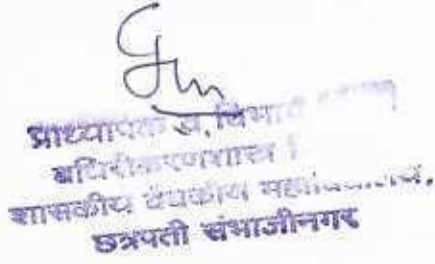 प्राध्यापक व विभाग
बधिरीकरणशास्त्र
शासकीय वैद्यकीय महाविद्यालय,
छत्रपती संभाजीनगर